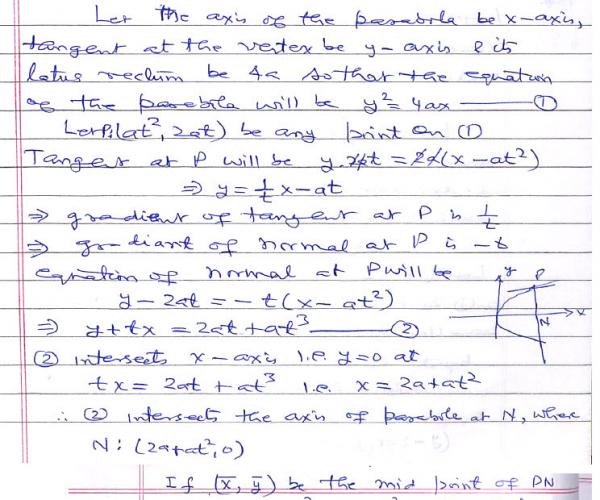 Let the axis of the parabola be x-axis,
tangent at the vertex be y-axis & its
latus rectum be 4a so that the equation
of the parabola will be y² = 4ax ——— ①
Let P:(at², 2at) be any point on ①
Tangent at P will be y.2at = 2a(x - at²)
⇒ y = 1/t x - at
⇒ gradient of tangent at P is 1/t
⇒ gradiant of normal at P is -t
equation of normal at P will be
y - 2at = -t(x - at²)
⇒ y + tx = 2at + at³ ——— ②
② intersects x-axis i.e. y=0 at
tx = 2at + at³ i.e. x = 2a + at²
∴ ② intersects the axis of parabola at N, where
N: (2a+at², 0)
If (x̄, ȳ) be the mid point of PN
y
P
x
N